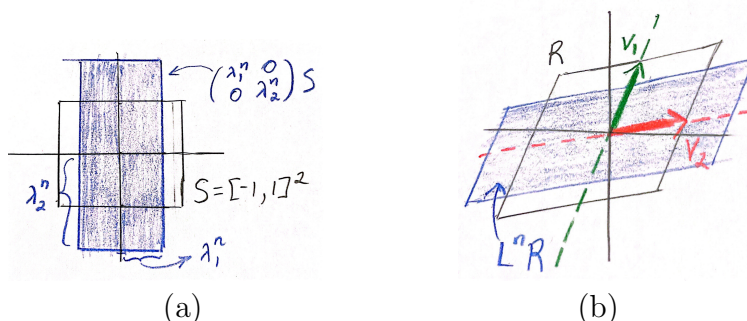 (λ₁ⁿ 0
0 λ₂ⁿ) S
λ₂ⁿ
S = [-1, 1]²
λ₁ⁿ
(a)
R
V₁
V₂
LⁿR
(b)